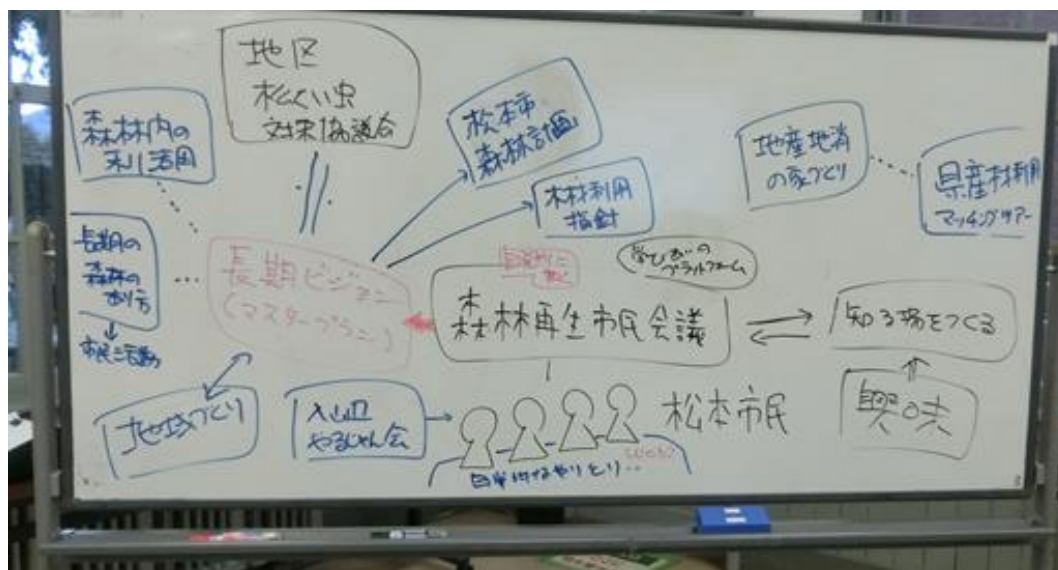 地区
松くい虫
対策協議会
森林内の
利活用
松本市
森林計画
木材利用
指針
地産地消
の家づくり
県産材利用
マッチングツアー
長期の
森林の
あり方
市民活動
長期ビジョン
(マスタープラン)
学びあいの
プラットフォーム
森林再生市民会議
知る場をつくる
興味
地域づくり
入山辺
やるじゃん会
松本市民
日常的なやりとり‥